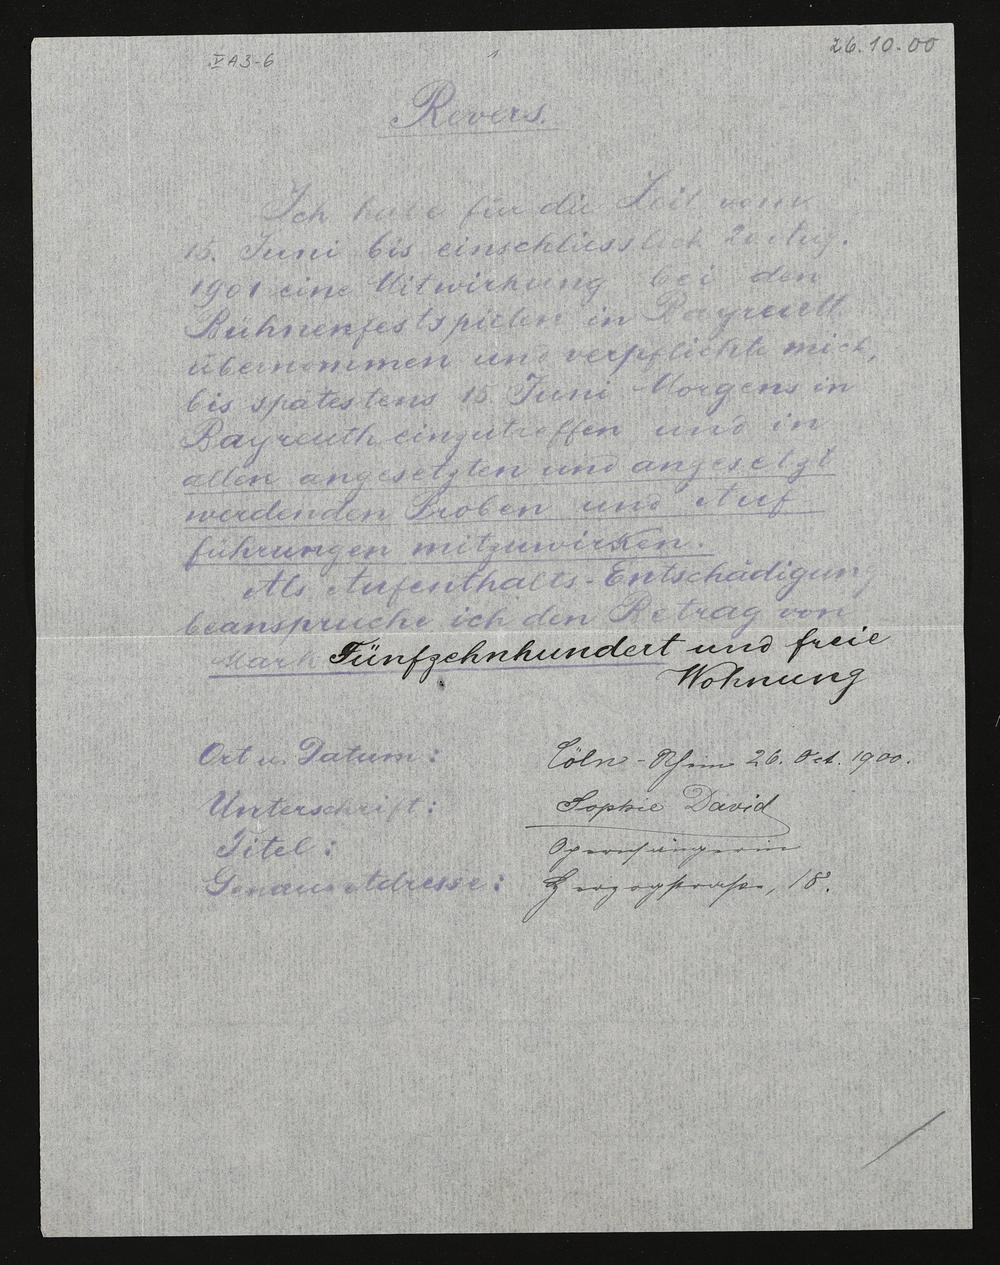 V A 3-6
1
26.10.00
Revers.
Ich habe für die Zeit vom
15. Juni bis einschliesslich 20 Aug.
1901 eine Mitwirkung bei den
Bühnenfestspielen in Bayreuth
übernommen und verpflichte mich,
bis spätestens 15. Juni Morgens in
Bayreuth einzutreffen und in
allen angesetzten und angesetzt
werdenden Proben und Auf-
führungen mitzuwirken.
Als Aufenthalts-Entschädigung
beanspruche ich den Betrag von
Mark Fünfzehnhundert und freie
Wohnung
Ort u. Datum: Cöln-Rhein 26. Oct. 1900.
Unterschrift: Sophie David
Titel: Opernsängerin
Genaue Adresse: Herzogstraße, 18.